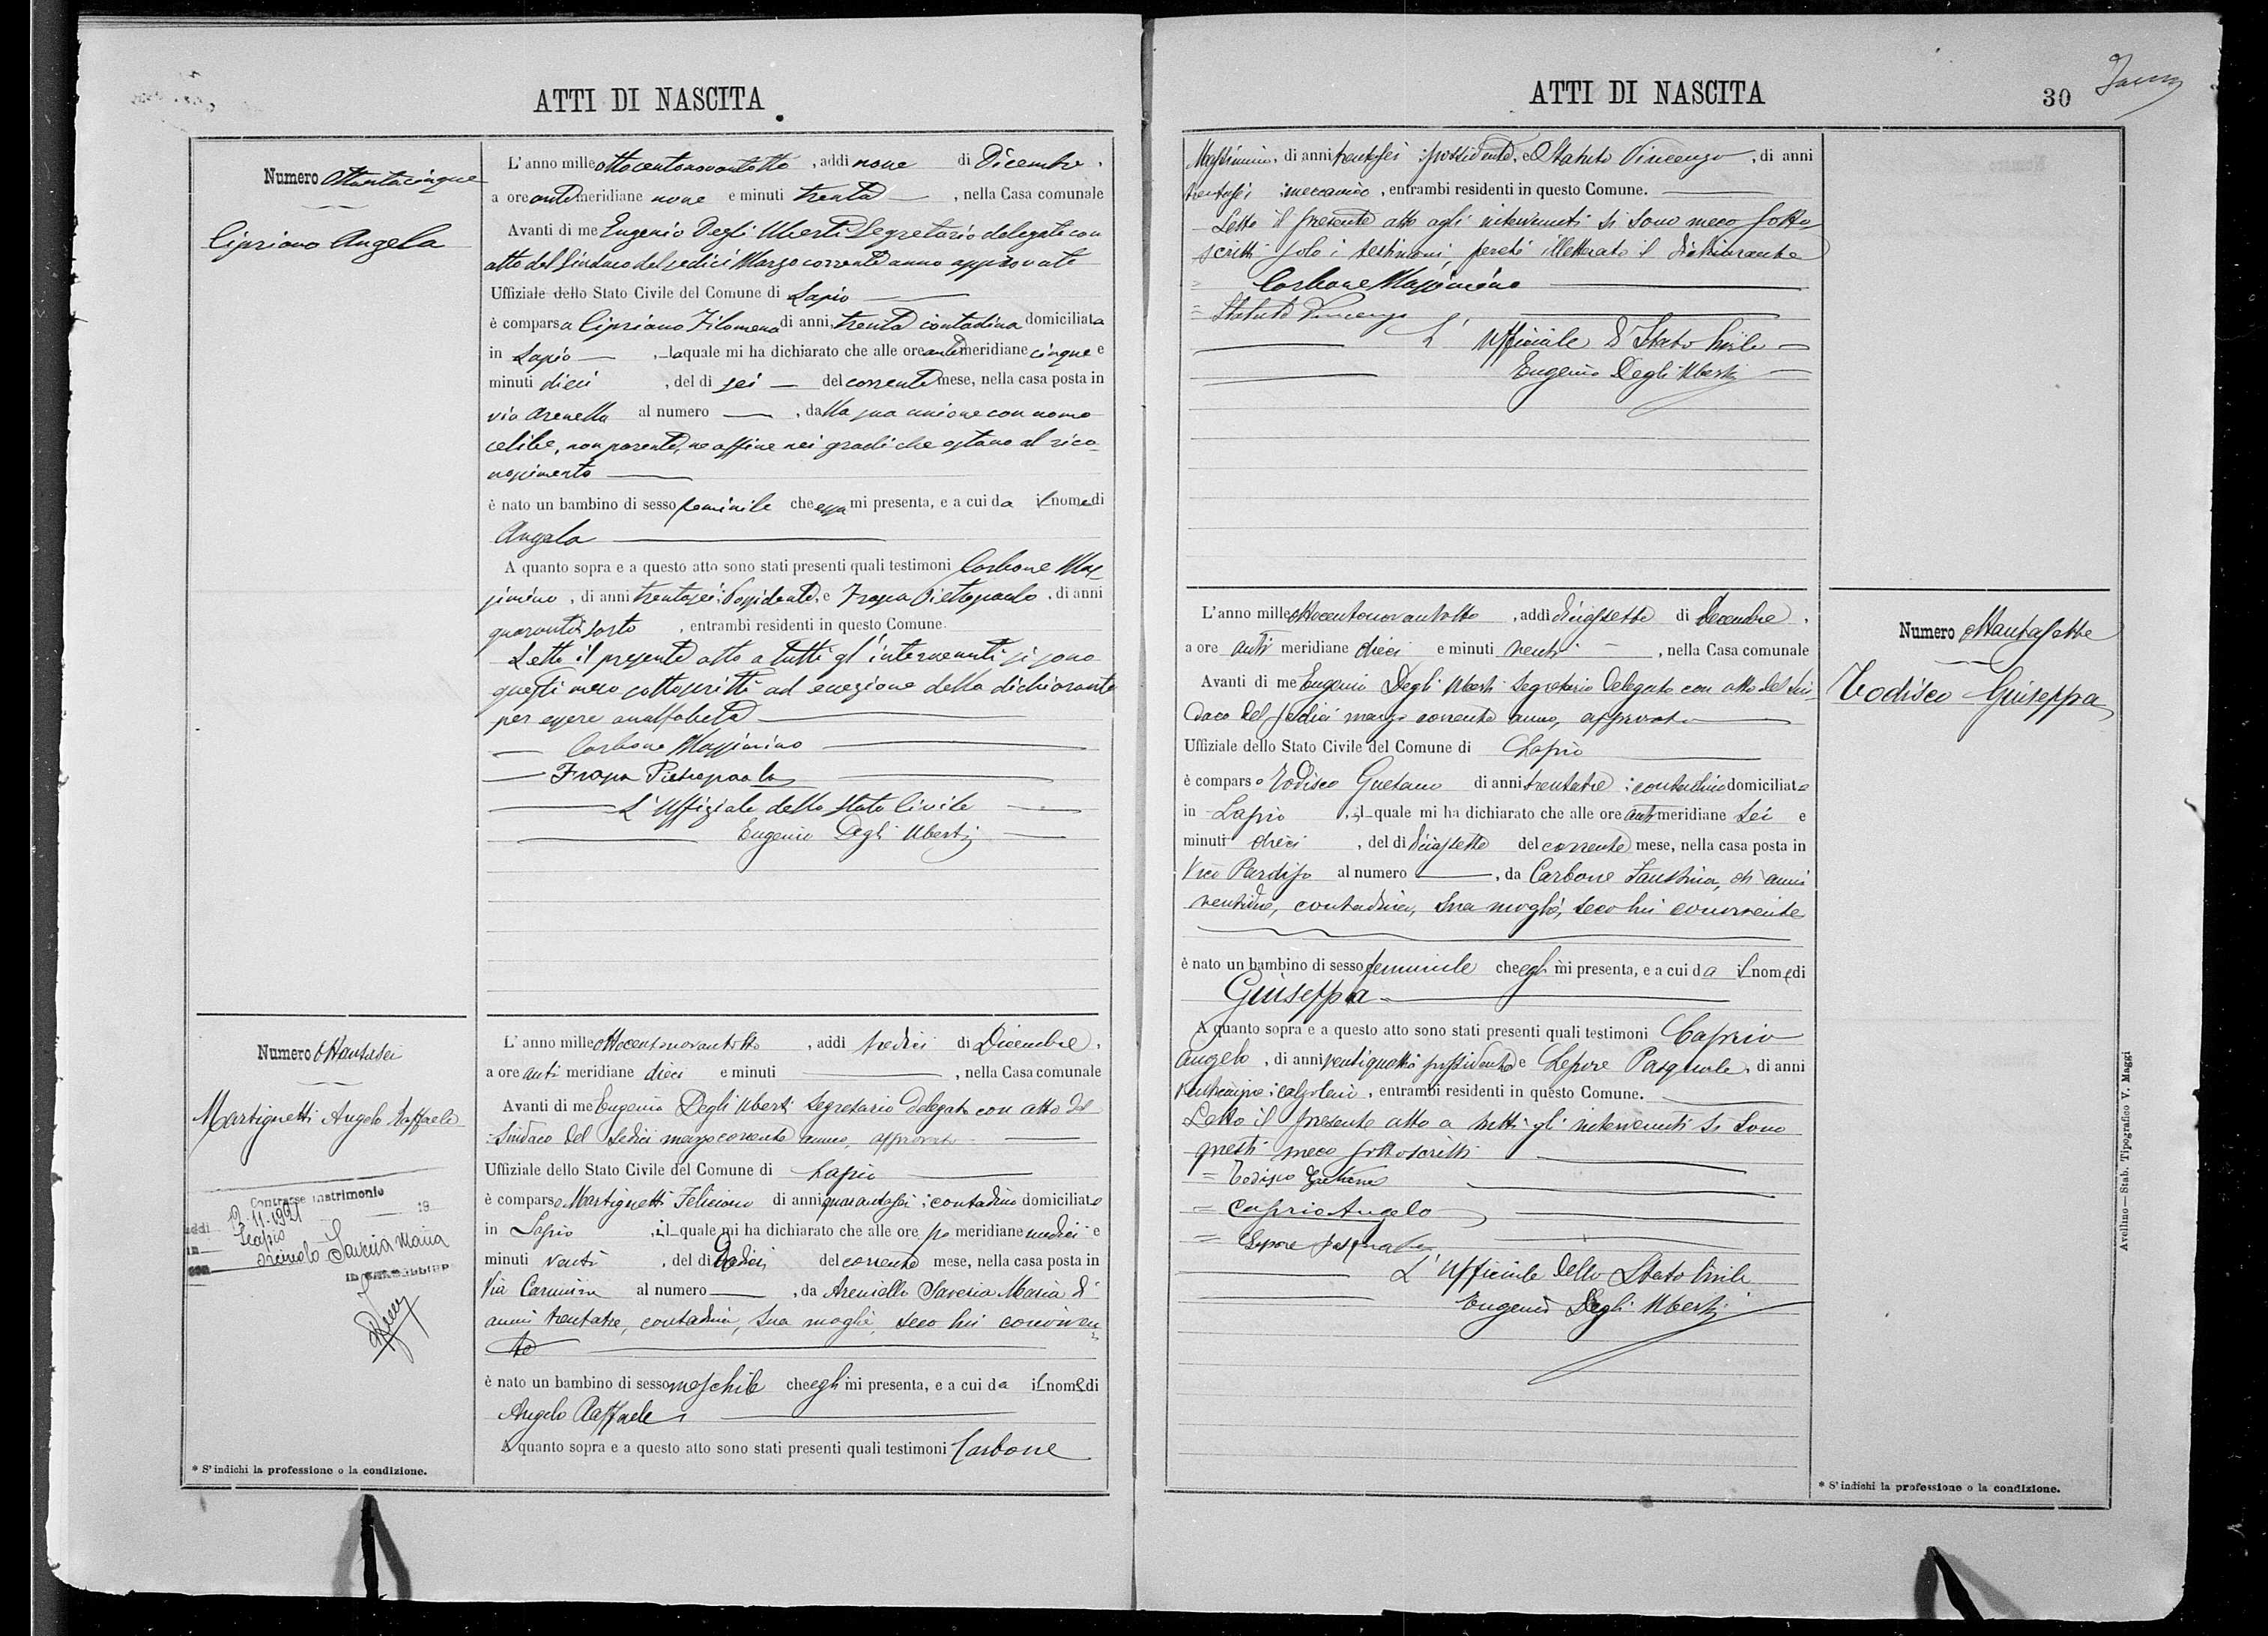 ATTI DI NASCITA
Numero Ottantacinque
Cipriano Angela
L'anno mille ottocentonovantotto, addì nove di Dicembre,
a ore antimeridiane nove e minuti trenta, nella Casa comunale
Avanti di me Eugenio Degli Uberti Segretario delegato con
atto del Sindaco del sedici Marzo corrente anno approvato
Uffiziale dello Stato Civile del Comune di Lapio
è comparsa Cipriano Filomena di anni, trenta contadina domiciliata
in Lapio, la quale mi ha dichiarato che alle ore antimeridiane cinque e
minuti dieci, del dì sei del corrente mese, nella casa posta in
via Arenella al numero, dalla sua unione con uomo
celibe, non parente, ne affine nei gradi che ostano al rico-
noscimento
è nato un bambino di sesso feminile che essa mi presenta, e a cui da il nome di
Angela
A quanto sopra e a questo atto sono stati presenti quali testimoni Carbone Mas-
simino, di anni trentasei, Possidente, e Frapa Pietropaolo, di anni
quaranta, sarto, entrambi residenti in questo Comune.
Letto il presente atto a tutti gl'intervenuti si sono
questi meco sottoscritti ad eccezione della dichiarante
per essere analfabeta
Carbone Massimino
Frapa Pietropaolo
L'Uffiziale dello Stato Civile
Eugenio Degli Uberti
Numero Ottantasei
Martignetti Angelo Raffaele
Contrasse matrimonio
addì 12-11-1921 19
in Lapio
con Arciuolo Saveria Maria
L'anno mille ottocentonovantotto, addì tredici di Dicembre,
a ore antimeridiane dieci e minuti, nella Casa comunale
Avanti di me Eugenio Degli Uberti Segretario delegato con atto del
Sindaco del sedici marzo corrente anno, approvato
Uffiziale dello Stato Civile del Comune di Lapio
è comparso Martignetti Feliciano di anni quarantasei, contadino domiciliato
in Lapio, il quale mi ha dichiarato che alle ore po meridiane undici e
minuti venti, del dì dodici del corrente mese, nella casa posta in
Via Carmine al numero, da Areniello Saveria Maria di
anni trentatre, contadina, sua moglie, seco lui conviven-
te
è nato un bambino di sesso maschile che egli mi presenta, e a cui da il nome di
Angelo Raffaele
A quanto sopra e a questo atto sono stati presenti quali testimoni Carbone
* S'indichi la professione o la condizione.
ATTI DI NASCITA
30
Massimino, di anni trentasei possidente, e Statuto Vincenzo, di anni
trentasei meccanico, entrambi residenti in questo Comune.
Letto il presente atto agli intervenuti si sono meco sotto-
scritti solo i testimoni, perchè illetterato il dichiarante
Carbone Massimino
Statuto Vincenzo
L'Ufficiale di Stato Civile
Eugenio Degli Uberti
Numero Ottantasette
Todisco Giuseppa
L'anno mille ottocentonovantotto, addì diciassette di Decembre,
a ore antimeridiane dieci e minuti venti, nella Casa comunale
Avanti di me Eugenio Degli Uberti Segretario delegato con atto del Sin-
daco del sedici marzo corrente anno, approvato
Uffiziale dello Stato Civile del Comune di Lapio
è comparso Todisco Gaetano di anni trentatre, contadino domiciliato
in Lapio, il quale mi ha dichiarato che alle ore antimeridiane sei e
minuti dieci, del dì diciassette del corrente mese, nella casa posta in
Vico Pardiso al numero, da Carbone Faustina, di anni
ventidue, contadina, sua moglie, seco lui convivente
è nato un bambino di sesso femminile che egli mi presenta, e a cui da il nome di
Giuseppa
A quanto sopra e a questo atto sono stati presenti quali testimoni Caprio
Angelo, di anni ventiquattro possidente e Lepore Pasquale, di anni
venticinque, calzolaio, entrambi residenti in questo Comune.
Letto il presente atto a tutti gli intervenuti si sono
questi meco sottoscritti
Todisco Gaetano
Caprio Angelo
Lepore Pasquale
L'Ufficiale dello Stato Civile
Eugenio Degli Uberti
* S'indichi la professione o la condizione.
Avellino—Stab. Tipografico V. Maggi